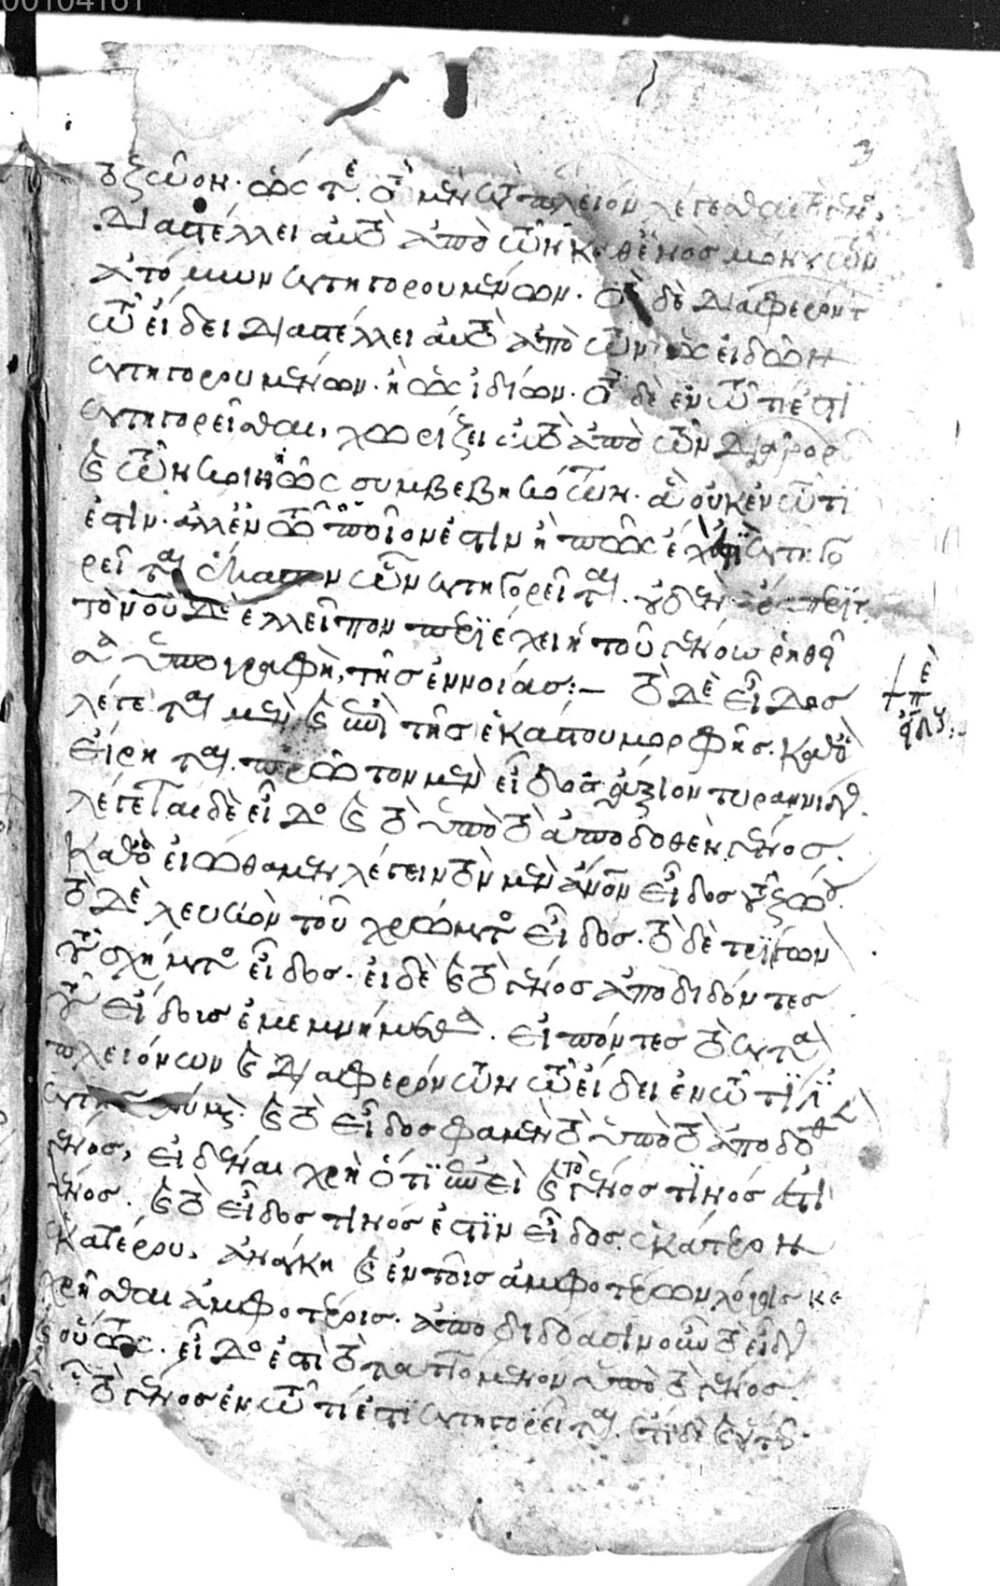 00104161
3
τὸ ζῶον. ὥστε. τὸ μὲν κατὰ πλειόνων λέγεσθαι τὸ γένος,
διαστέλλει αὐτὸ ἀπὸ τῶν καθ' ἑνὸς μόνου τῶν
ἀτόμων κατηγορουμένων. τὸ δὲ διαφερόντων
τῷ εἴδει διαστέλλει αὐτὸ ἀπὸ τῶν ὡς εἰδῶν
κατηγορουμένων. ἢ ὡς ἰδίων. τὸ δὲ ἐν τῷ τί ἐστι
κατηγορεῖσθαι, χωρίζει αὐτὸ ἀπὸ τῶν διαφορῶν
καὶ τῶν κοινῶς συμβεβηκότων. ἃ οὐκ ἐν τῷ τί
ἐστιν. ἀλλ' ἐν τῷ ποῖον ἐστὶν ἢ πῶς ἔχον ἐστὶ κατηγο
ρεῖται ἕκαστον ὧν κατηγορεῖται. οὐδὲν ἄρα περιτ
τὸν οὐδὲ ἐλλεῖπον περιέχει ἡ τοῦ γένους ῥηθεῖ
σα ὑπογραφὴ, τῆς ἐννοίας:— τὸ δὲ εἶδος
λέγεται μὲν καὶ ἐπὶ τῆς ἑκάστου μορφῆς. καθὸ
εἴρηται. πρῶτον μὲν εἶδος ἄξιον τυραννίδος.
λέγεται δὲ εἶδος καὶ τὸ ὑπὸ τὸ ἀποδοθὲν γένος.
καθὸ εἰώθαμεν λέγειν τὸν μὲν ἄνον εἶδος τοῦ ζώου.
τὸ δὲ λευκὸν τοῦ χρώματος εἶδος. τὸ δὲ τρίγωνον
τοῦ σχήματος εἶδος. εἰ δὲ καὶ τὸ γένος ἀποδιδόντες
τοῦ εἴδους ἐμεμνήμεθα. εἰπόντες τὸ κατὰ
πλειόνων καὶ διαφερόντων τῷ εἴδει ἐν τῷ τί ἐστι
κατηγορούμενον. καὶ τὸ εἶδος φαμὲν τὸ ὑπὸ τὸ ἀποδοθὲν
γένος, εἰδέναι χρὴ ὅτι ἐπεὶ καὶ τὸ γένος τινός ἐστι
γένος. καὶ τὸ εἶδος τινός ἐστιν εἶδος. ἑκάτερον
ἑκατέρου, ἀνάγκη καὶ ἐν τοῖς ἀμφοτέρων λόγοις κε
χρῆσθαι ἀμφοτέροις. ἀποδιδόασιν οὖν τὸ εἶδος
καὶ οὕτως. εἶδος ἐστὶ τὸ ταττόμενον ὑπὸ τὸ γένος.
καὶ οὗ τὸ γένος ἐν τῷ τί ἐστι κατηγορεῖται. ἔτι δὲ καὶ οὕτως.